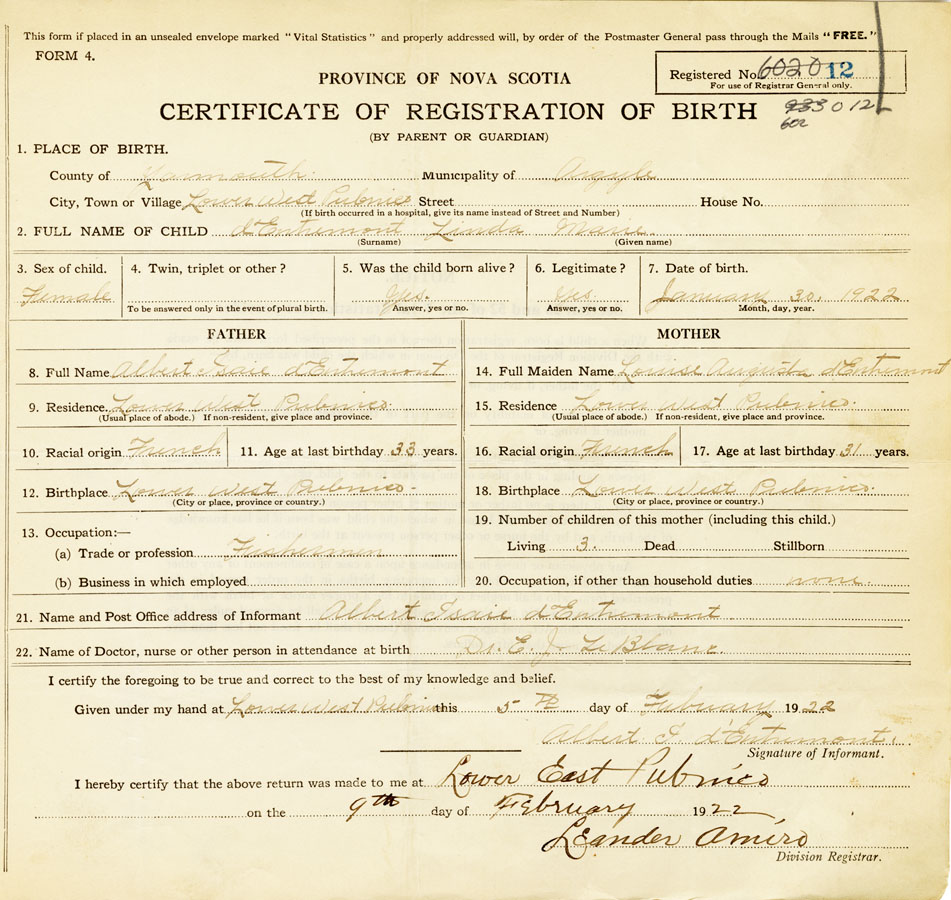 This form if placed in an unsealed envelope marked "Vital Statistics" and properly addressed will, by order of the Postmaster General pass through the Mails "FREE."
FORM 4.
PROVINCE OF NOVA SCOTIA
Registered No. 6020 12
For use of Registrar General only.
CERTIFICATE OF REGISTRATION OF BIRTH
012
602
(BY PARENT OR GUARDIAN)
1. PLACE OF BIRTH.
County of Yarmouth Municipality of Argyle
City, Town or Village Lower West Pubnico Street House No.
(If birth occurred in a hospital, give its name instead of Street and Number)
2. FULL NAME OF CHILD d'Entremont Linda Marie.
(Surname) (Given name)
3. Sex of child. 4. Twin, triplet or other? 5. Was the child born alive? 6. Legitimate? 7. Date of birth.
Female Yes. Yes. January 30. 1922
To be answered only in the event of plural birth. Answer, yes or no. Answer, yes or no. Month, day, year.
FATHER
8. Full Name Albert Isaie d'Entremont
9. Residence. Lower West Pubnico
(Usual place of abode.) If non-resident, give place and province.
10. Racial origin French 11. Age at last birthday 33 years.
12. Birthplace Lower West Pubnico.
(City or place, province or country.)
13. Occupation:—
(a) Trade or profession Fishermen
(b) Business in which employed
MOTHER
14. Full Maiden Name Louise Augusta d'Entremont
15. Residence Lower West Pubnico.
(Usual place of abode.) If non-resident, give place and province.
16. Racial origin French 17. Age at last birthday 31 years.
18. Birthplace Lower West Pubnico.
(City or place, province or country.)
19. Number of children of this mother (including this child.)
Living 3. Dead Stillborn
20. Occupation, if other than household duties none.
21. Name and Post Office address of Informant Albert Isaie d'Entremont
22. Name of Doctor, nurse or other person in attendance at birth Dr. E. J. LeBlanc.
I certify the foregoing to be true and correct to the best of my knowledge and belief.
Given under my hand at Lower West Pubnico this 5th day of February 1922
Albert I. d'Entremont.
Signature of Informant.
I hereby certify that the above return was made to me at Lower East Pubnico
on the 9th day of February 1922
Leander Amiro
Division Registrar.